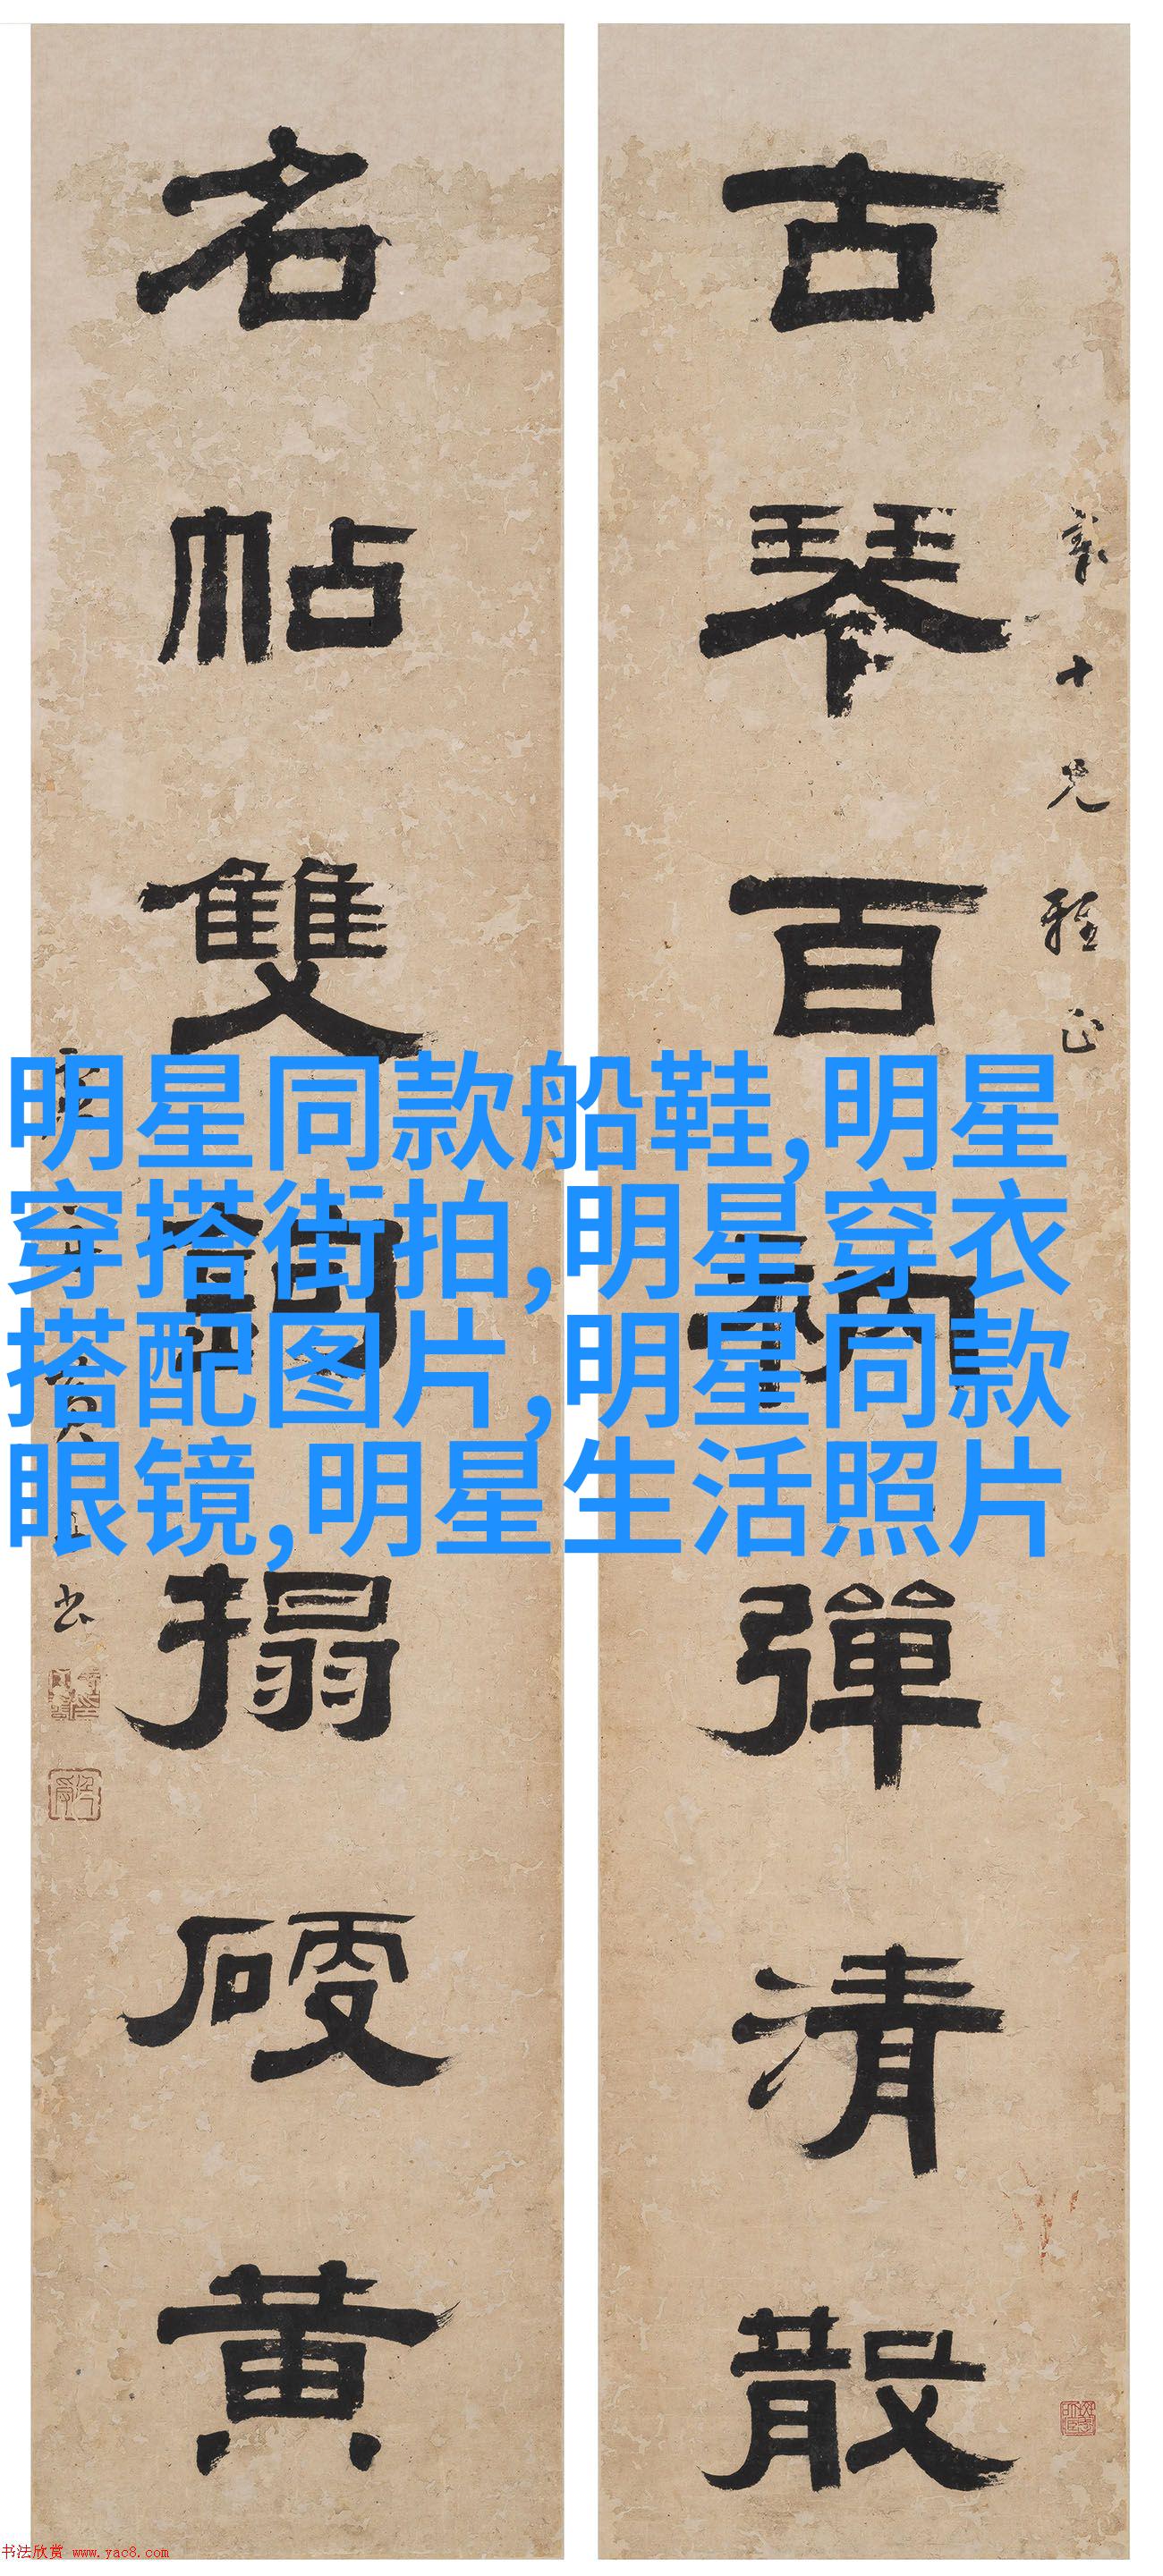 古琴百衲彈清散
名帖雙鉤搨硬黃
十兄雅正
書
明星同款船鞋,明星
穿搭街拍,明星穿衣
搭配图片,明星同款
眼镜,明星生活照片
书法欣赏 www.yac8.com